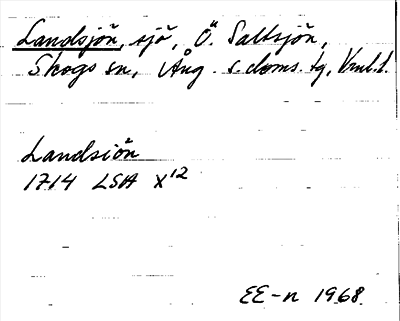 Landsjön, sjö, Ö. Saltsjön,
Skogs sn, Ång. s. doms. tg, Vnl. l.
Landsiön
1714 LSA X12
EE-n 1968.